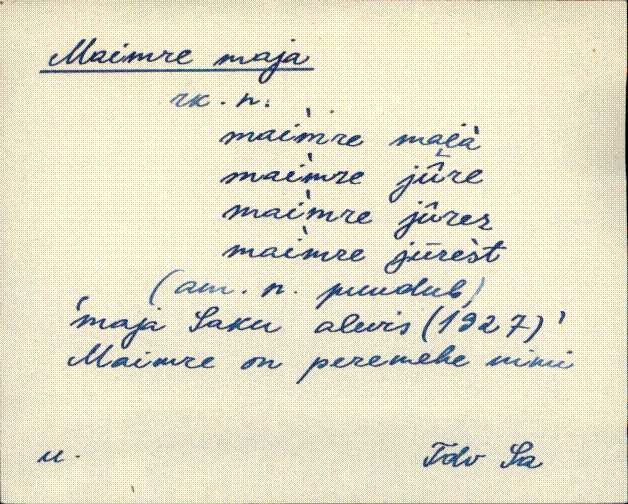 Maimre maja
rk. n.
maim̀re majà
maim̀re jûre
maim̀re jûrez
maim̀re jūrèst
(am. n. puudub)
'maja Saku alevis (1927)'
Maimre on peremehe nimi
u. Tdv Sa